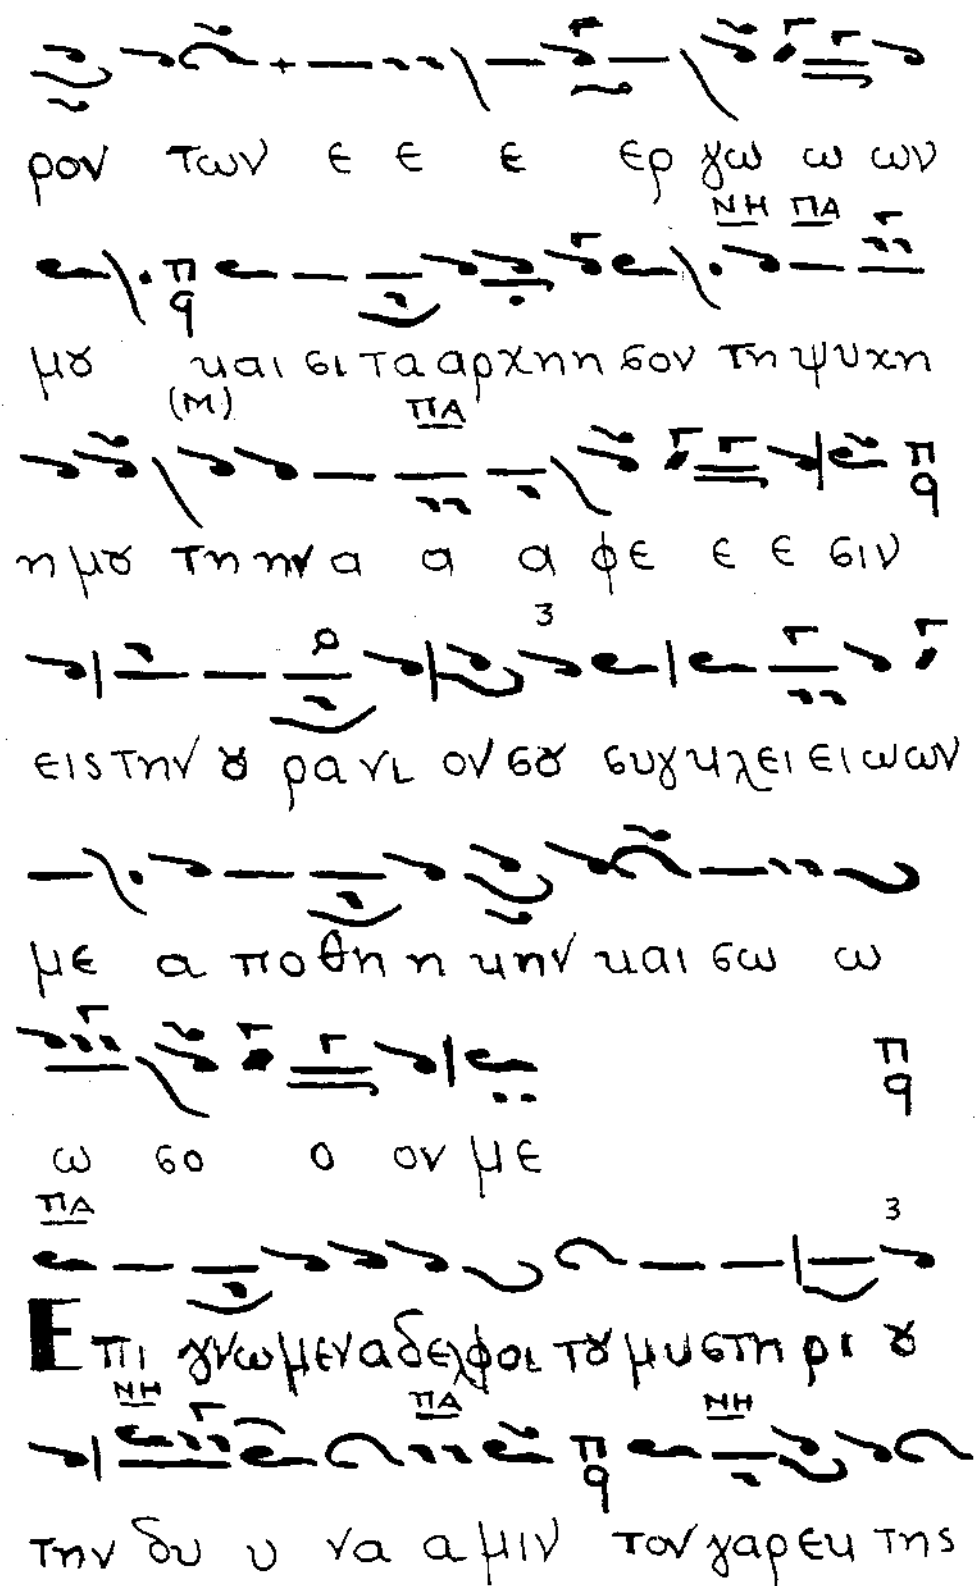 ρον των ε ε ε ερ γω ω ων
ΝΗ ΠΑ
π
q
μȣ και σι τα αρχηη σον τη ψυχη
(Μ) ΠΑ
π
q
η μȣ τη ην α α α φε ε ε σιν
3
εις την ȣ ρα νι ον σȣ συγκλει ει ω ων
με α πο θη η κην και σω ω
π
q
ω σο ο ον με
ΠΑ
3
Ε πι γνω μεν α δελ φοι τȣ μυ στη ρι ȣ
ΝΗ ΠΑ ΝΗ
π
q
την δυ υ να α μιν τον γαρ εκ της